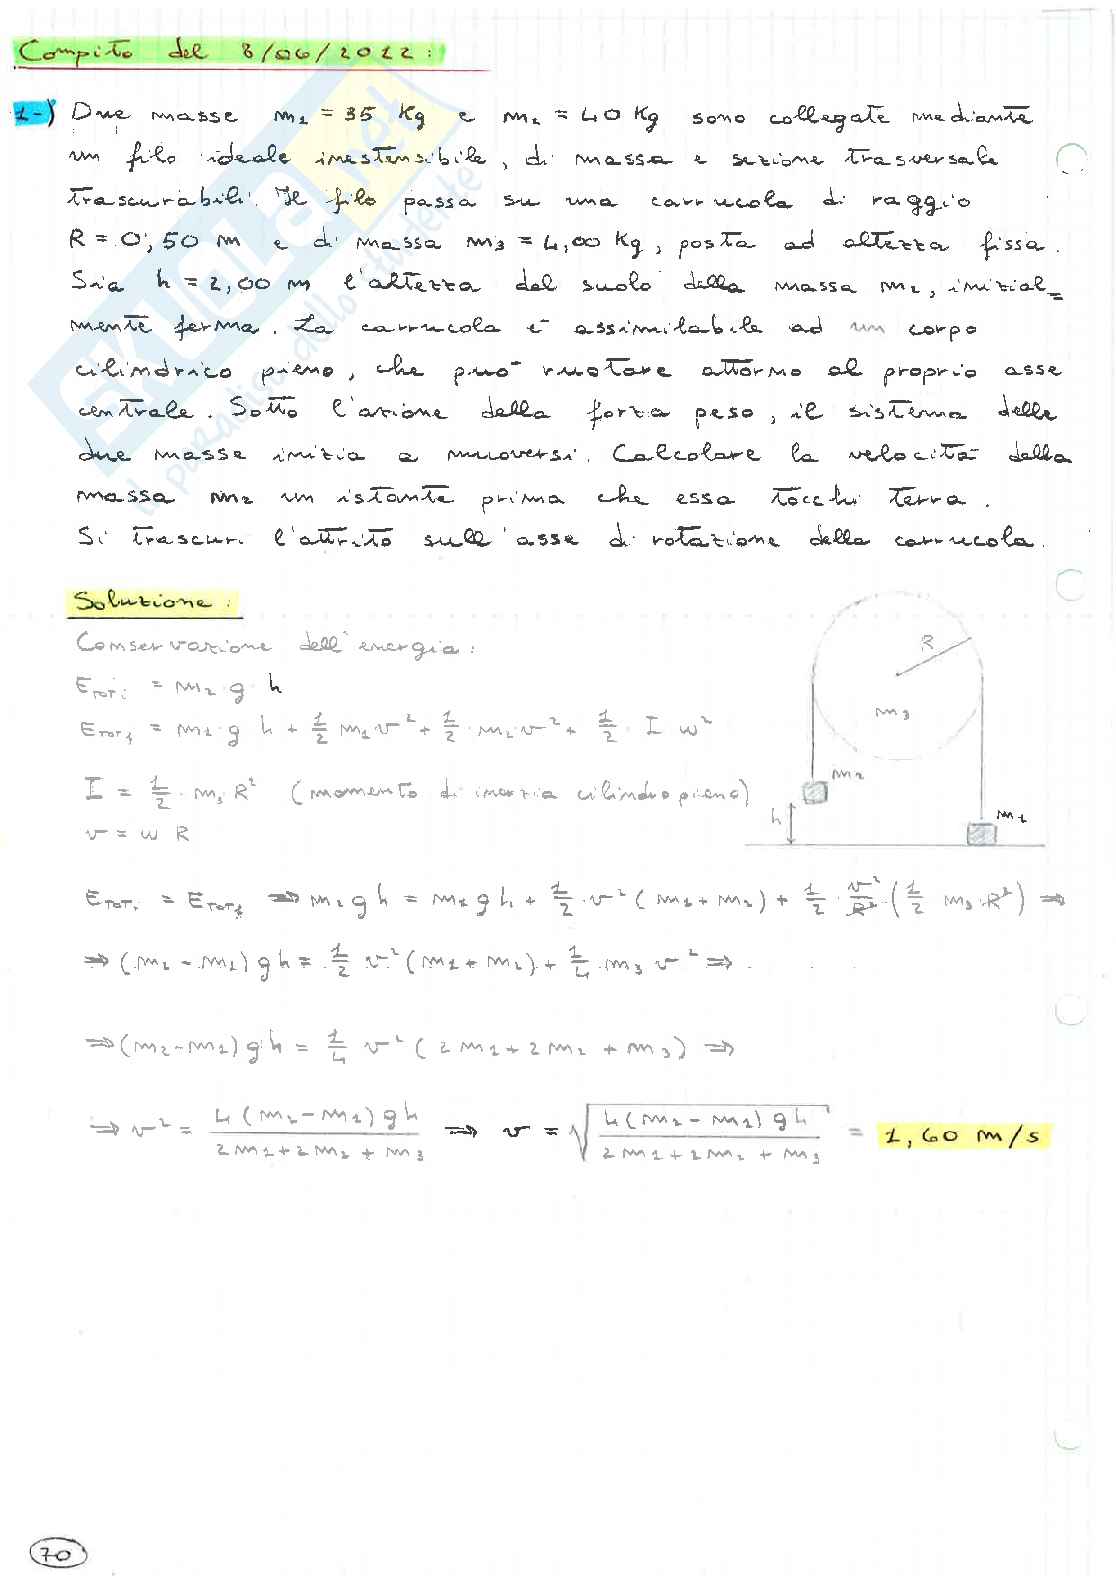 Compito del 8/06/2012:
1-) Due masse m1 = 35 Kg e m2 = 40 Kg sono collegate mediante
un filo ideale inestensibile, di massa e sezione trasversale
trascurabili. Il filo passa su una carrucola di raggio
R = 0,50 m e di massa m3 = 4,00 Kg, posta ad altezza fissa.
Sia h = 2,00 m l'altezza dal suolo della massa m2, inizial=
mente ferma. La carrucola è assimilabile ad un corpo
cilindrico pieno, che può ruotare attorno al proprio asse
centrale. Sotto l'azione della forza peso, il sistema delle
due masse inizia a muoversi. Calcolare la velocità della
massa m2 un istante prima che essa tocchi terra.
Si trascuri l'attrito sull'asse di rotazione della carrucola.
Soluzione:
Conservazione dell'energia:
ETOTi = m2 g h
ETOTf = m1 · g h + 1/2 m1 v² + 1/2 · m2 v² + 1/2 · I ω²
I = 1/2 · m3 R² (momento di inerzia cilindro pieno)
v = ω R
R
m3
m2
h
m1
ETOTi = ETOTf ⇒ m2 g h = m1 g h + 1/2 · v² (m1 + m2) + 1/2 · v²/R² · (1/2 m3 · R²) ⇒
⇒ (m2 - m1) g h = 1/2 v² (m1 + m2) + 1/4 · m3 v² ⇒
⇒ (m2 - m1) g h = 1/4 v² (2m1 + 2m2 + m3) ⇒
⇒ v² = 4 (m2 - m1) g h / 2m1 + 2m2 + m3 ⇒ v = √ 4 (m2 - m1) g h / 2m1 + 2m2 + m3 = 1,60 m/s
70
SKUOLA.net
il paradiso dello studente